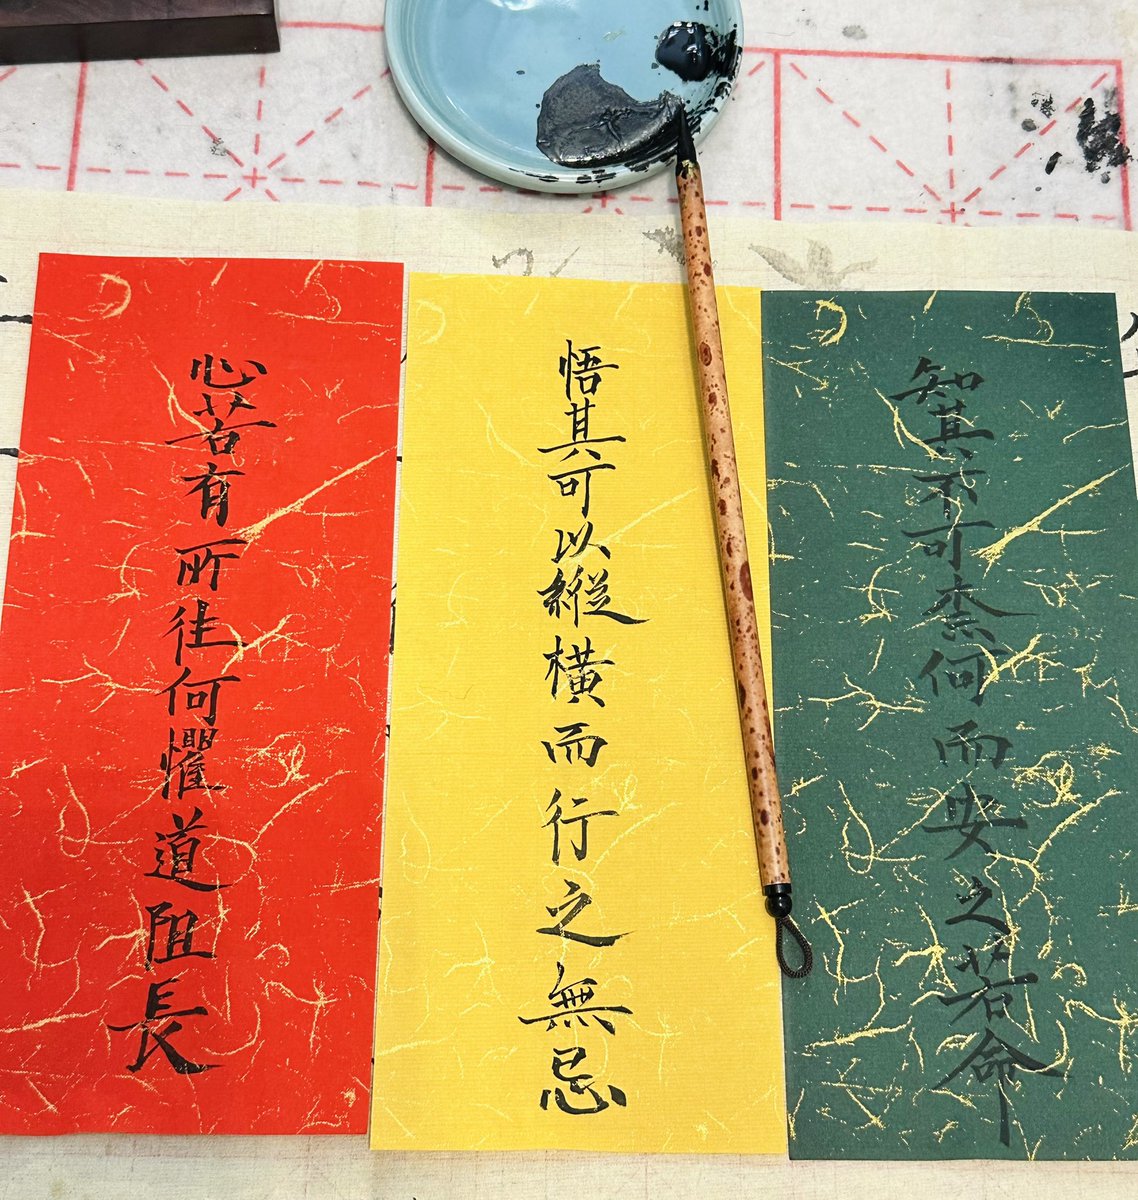 知其不可柰何而安之若命
悟其可以縱橫而行之無忌
心若有所往何懼道阻長